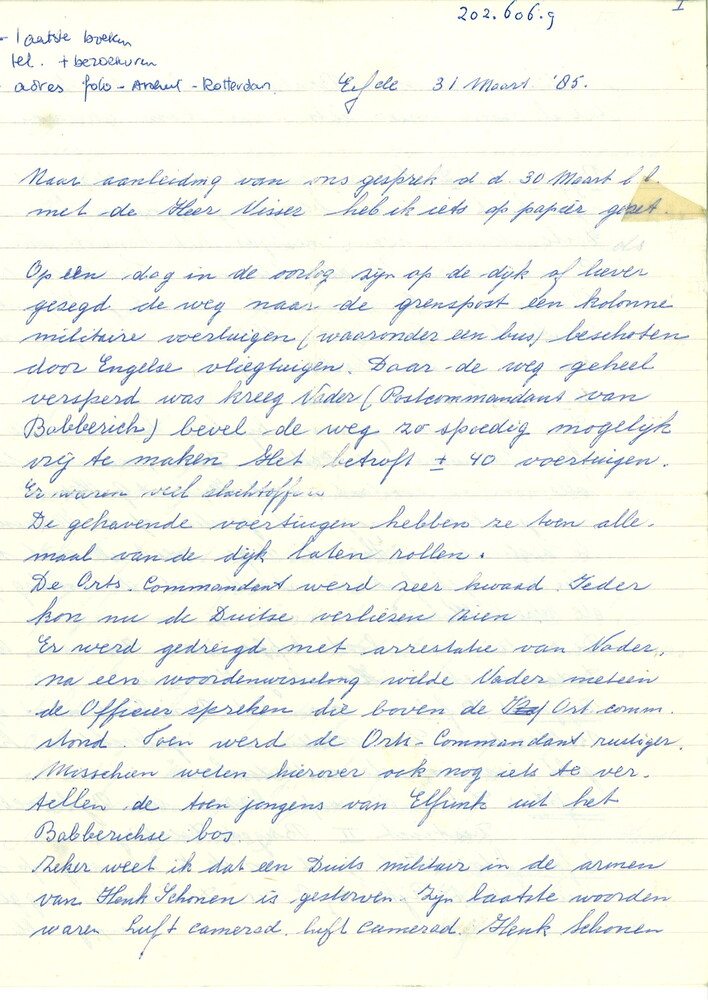 202.606.g
I
- laatste boeken
tel. + bezoekuren
- adres foto - Archief - Rotterdam.
Eefde 31 Maart '85.
Naar aanleiding van ons gesprek d d. 30 Maart l l.
met de Heer Visser heb ik iets op papier gezet.
Op een dag in de oorlog zijn op de dijk of liever
gezegd de weg naar de grenspost een kolonne
militaire voertuigen (waaronder een bus) beschoten
door Engelse vliegtuigen. Daar de weg geheel
versperd was kreeg Vader (Postcommandant van
Babberich) bevel de weg zo spoedig mogelijk
vrij te maken Het betrof ± 40 voertuigen.
Er waren veel slachtoffers
De gehavende voertuigen hebben ze toen alle-
maal van de dijk laten rollen.
De Orts-Commandant werd zeer kwaad. Ieder
kon nu de Duitse verliezen zien
Er werd gedreigd met arrestatie van Vader,
na een woordenwisseling wilde Vader meteen
de Officier spreken die boven de Ort. comm.
stond. Toen werd de Orts-Commandant rustiger.
Misschien weten hierover ook nog iets te ver-
tellen de toen jongens van Elfrink uit het
Babberichse bos.
Zeker weet ik dat een Duits militair in de armen
van Henk Schonen is gestorven. Zijn laatste woorden
waren huft camerad. huft camerad. Henk Schonen